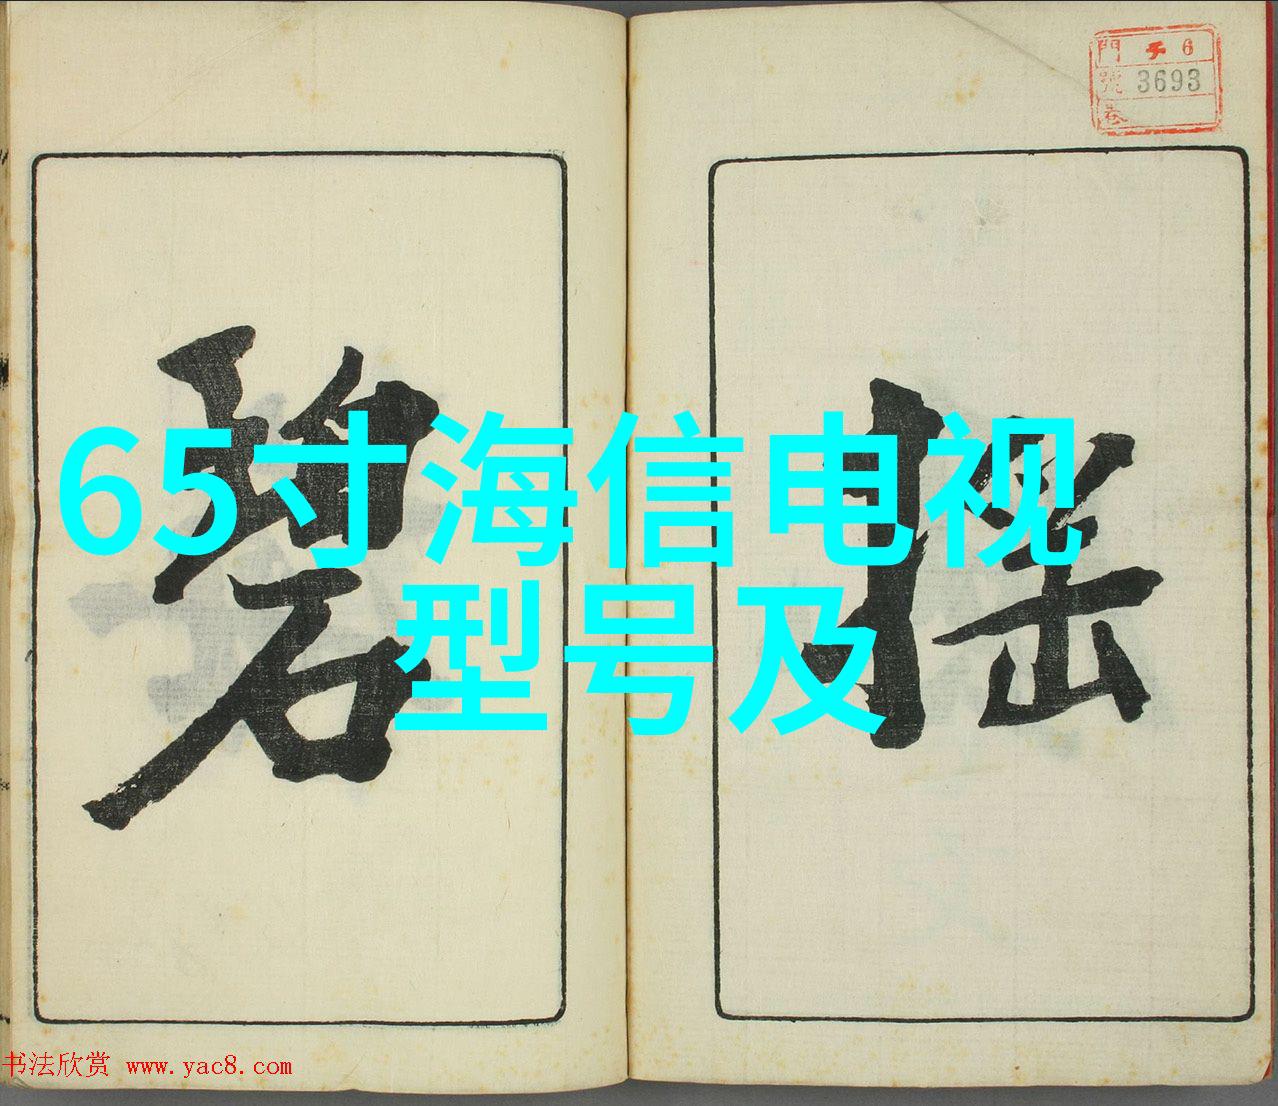 門 子 6
號 3693
卷
搖
碧
65寸海信电视
型号及
书法欣赏 www.yac8.com